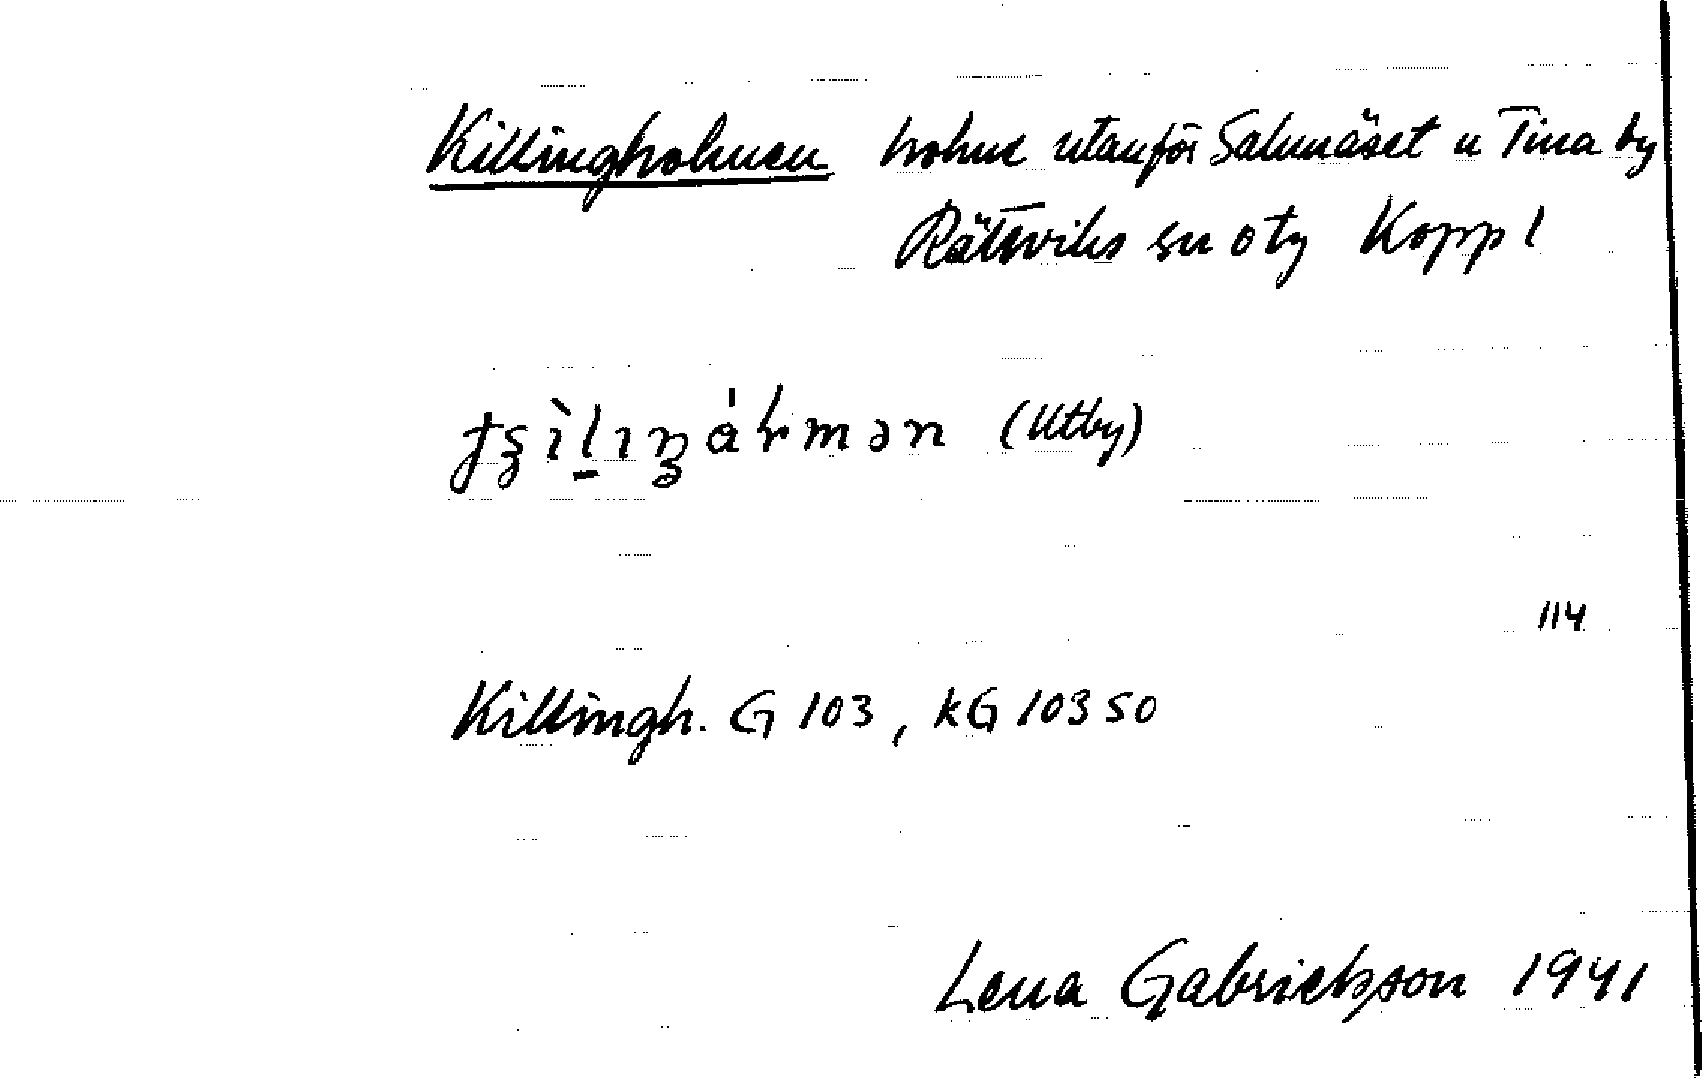 Killingholmen holme utanför Salunäset u Tina by
Rättviks sn o tg Kopp l
(Utby)
114
Killingh. G 103, kG 10350
Lena Gabrielsson 1941